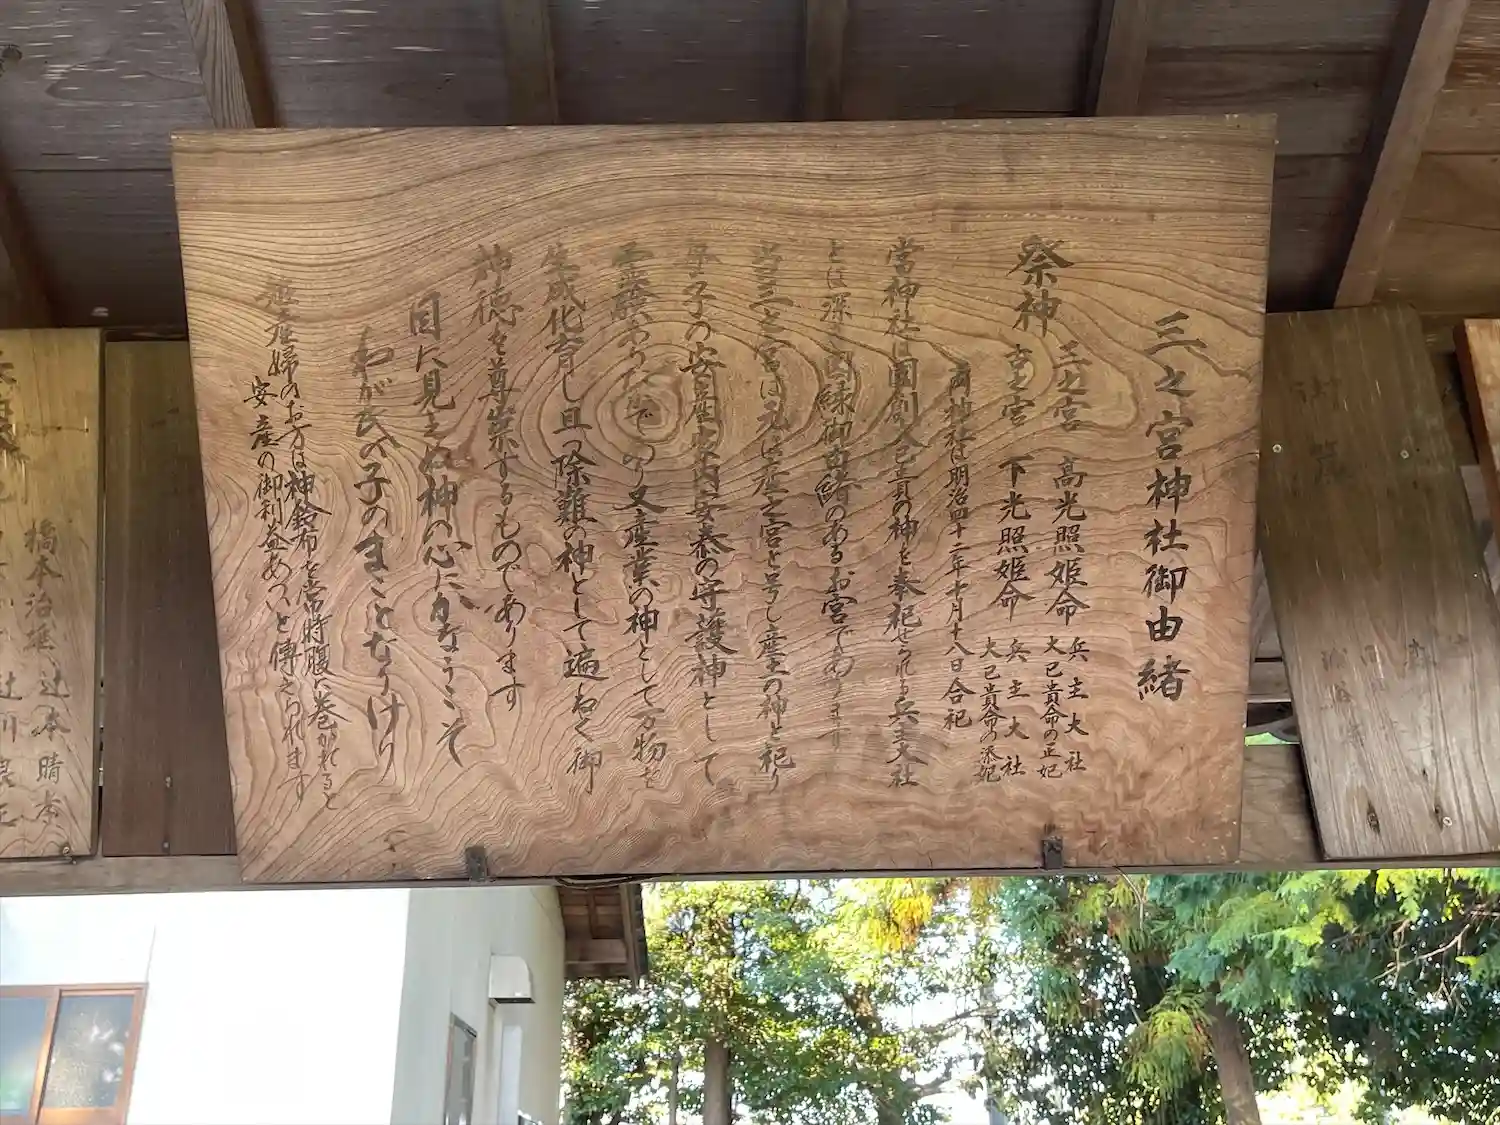 三之宮神社御由緒
祭神 三之宮 高光照姫命 兵主大社
大已貴命の正妃
古之宮 下光照姫命 兵主大社
大已貴命の添妃
両神社は明治四十二年七月十八日合祀
当神社は国創大已貴の神を奉祀せられる兵主大社
とは深き因縁御由緒のあるお宮であります
当三之宮は元は産之宮と号し産土の神と祀り
母子の安産家内安泰の守護神として
霊験あらたかであり又産業の神として万物を
生成化育し且つ除難の神として遍ねく御
神徳を尊崇するものであります
目に見えぬ神の心にかなうこそ
わが氏の子のまことなりけり
妊産婦のお方は神鈴布を常時腹に巻かれると
安産の御利益あついと傳えられます
橋本治雄 辻本晴彦
辻川